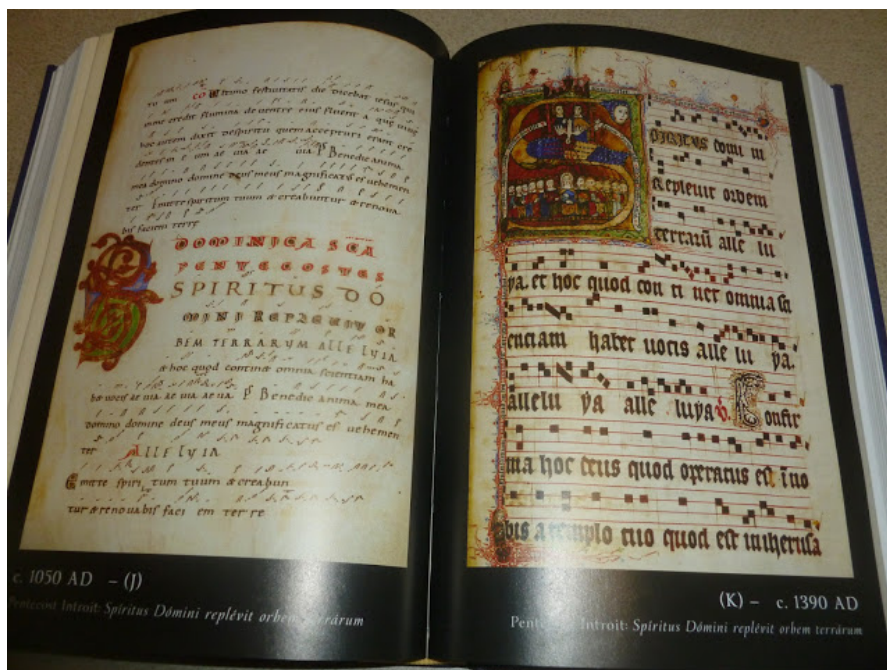 co ltimo festivitatis die dicebat iesus qui
inme credit flumina deventre eius fluent a que vive
hoc autem dixit despiritu quem accepturi erant cre
dentes in e um ae uia ae uia P Benedic anima
mea domino domine deus meus magnificatus es vehemen
ter Emitte spiritum tuum & creabuntur & renova
bis faciem terre
DOMINICA SCA
PENTECOSTES
SPIRITUS DO
MINI REPLEUIT OR
BEM TERRARUM ALLELUIA
& hoc quod contin& omnia scientiam ha
be vocis ae uia ae uia ae uia P Benedic anima mea
domino domine deus meus magnificatus es vehemen
ter Alleluia
Emitte spiri tum tuum & creabun
tur & renovabis faci em terre
c. 1050 AD – (J)
Pentecost Introit: Spíritus Dómini replévit orbem terrárum
SPIRITUS domi ni
Repleuit orbem
terrarū alle lu
ya. et hoc quod con ti net omnia sci
enciam habet uocis alle lu ya.
allelu ya alle luya V Confir
ma hoc deus quod operatus es, ī no
bis a templo tuo quod est in iherusa
(K) – c. 1390 AD
Introit: Spíritus Dómini replévit orbem terrárum